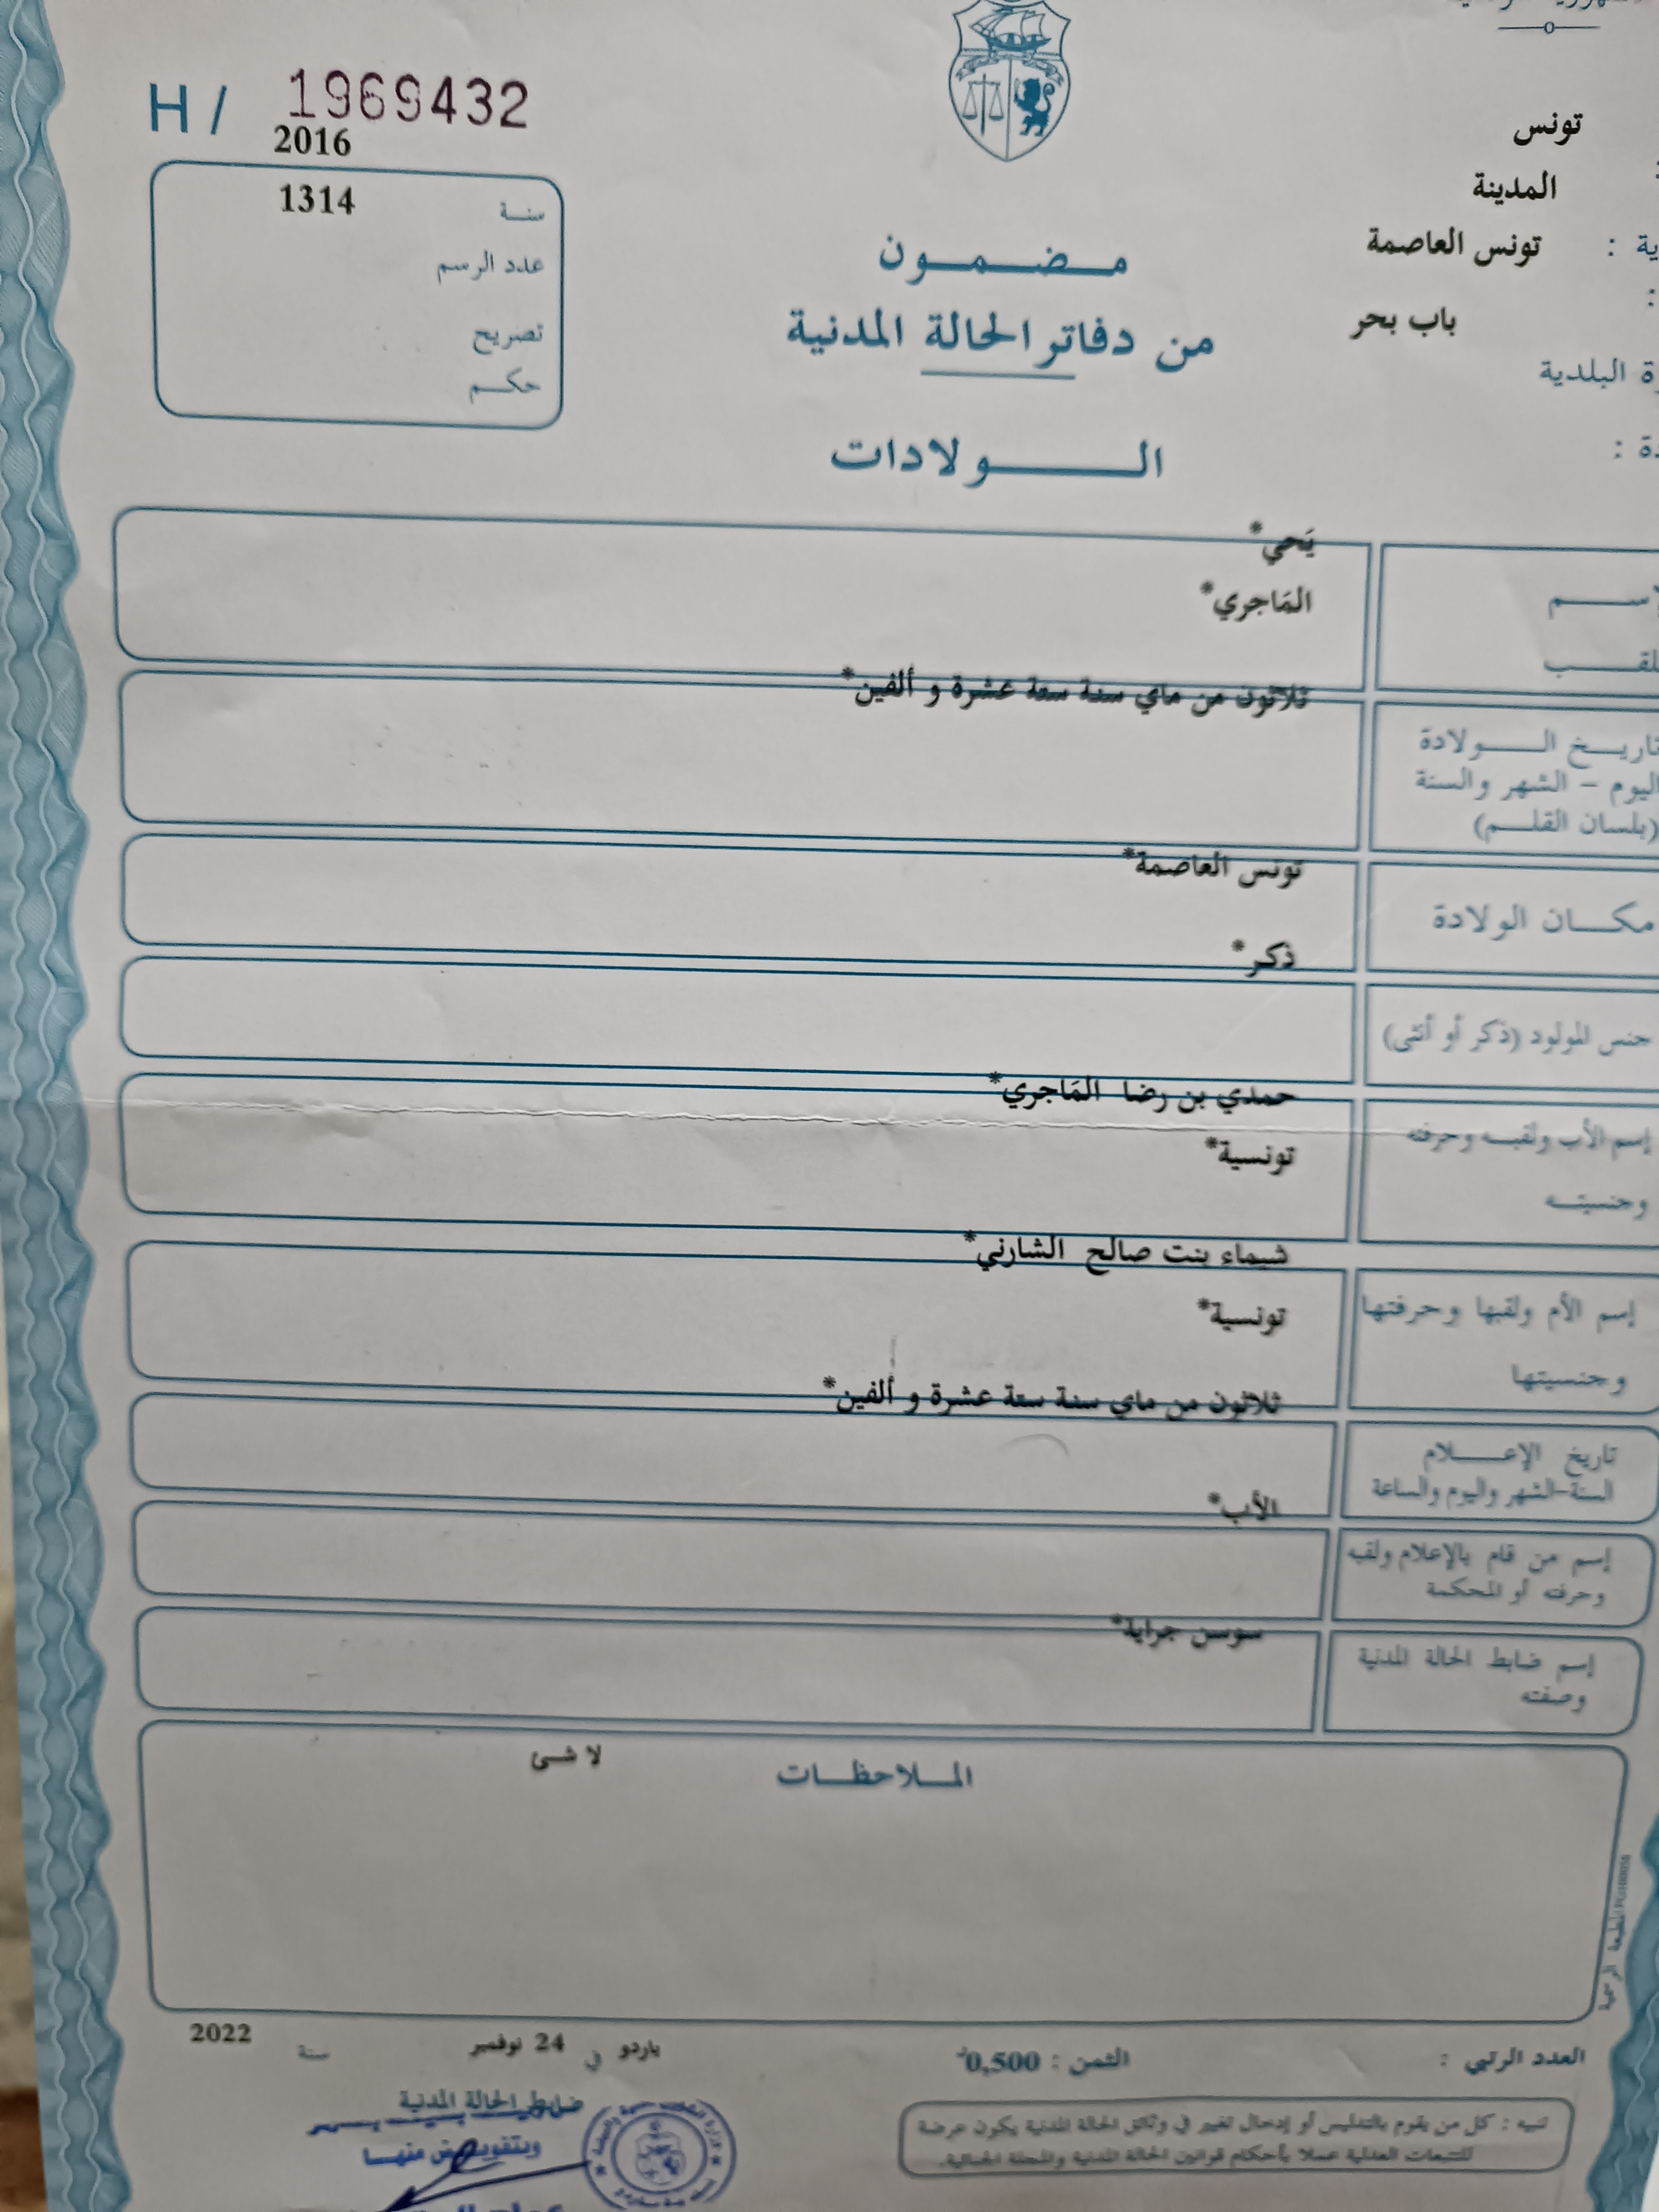 H / 1969432
2016
1314
سنة
عدد الرسم
تصريح
حكم
تونس
المدينة
ية : تونس العاصمة
باب بحر
ة البلدية
دة :
مضمون
من دفاتر الحالة المدنية
الولادات
يَحي*
المَاجري*
ثلاثون من ماي سنة ستة عشرة و ألفين*
تاريخ الولادة
اليوم – الشهر والسنة
(بلسان القلم)
تونس العاصمة*
مكان الولادة
ذكر*
جنس المولود (ذكر أو أنثى)
حمدي بن رضا المَاجري*
إسم الأب ولقبه وحرفته
تونسية*
وجنسيته
شيماء بنت صالح الشارني*
إسم الأم ولقبها وحرفتها
تونسية*
وجنسيتها
ثلاثون من ماي سنة ستة عشرة و ألفين*
تاريخ الإعلام
السنة-الشهر واليوم والساعة
الأب*
إسم من قام بالإعلام ولقبه
وحرفته أو المحكمة
سوسن جراية*
إسم ضابط الحالة المدنية
وصفته
الملاحظات
لا شئ
العدد الرتبي :
الثمن : 0,500د
باردو في 24 نوفمبر سنة 2022
ضابط الحالة المدنية
وبتفويض منها
تنبيه : كل من يقوم بالتدليس أو إدخال تغيير في وثائق الحالة المدنية يكون عرضة
للتتبعات العدلية عملا بأحكام قوانين الحالة المدنية والمجلة الجنائية.